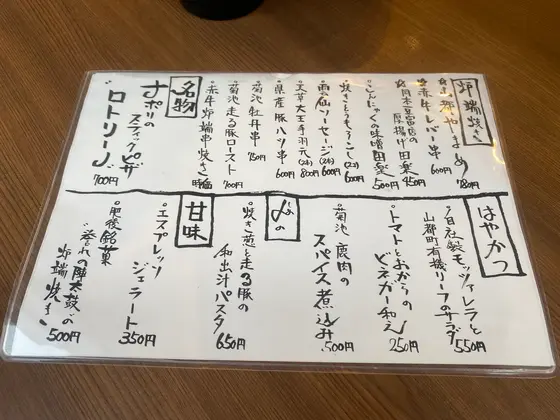 炉端焼き
山都やまめ 780円
赤牛レバー串 600円
佐月本豆富店の
厚揚げ田楽 450円
こんにゃくの味噌田楽 500円
焼きとうもろこし(2ヶ) 600円
雲仙ソーセージ(2ヶ) 600円
天草大王手羽元(2ヶ) 800円
県産豚ハツ串 600円
菊池牡丹串 750円
菊池走る豚ロースト 700円
赤牛炉端串焼き 時価
名物
ナポリの
スティックピザ
"ロトリーノ" 700円
はやかつ
自社製モッツァレラと
山都町有機リーフのサラダ 550円
トマトとおからの
ビネガー和え 250円
菊池鹿肉の
スパイス煮込み 500円
〆の
焼き葱と走る豚の
和出汁パスタ 650円
甘味
エスプレッソ
ジェラート 350円
肥後銘菓
"誉れの陣太鼓"の
炉端焼き 500円